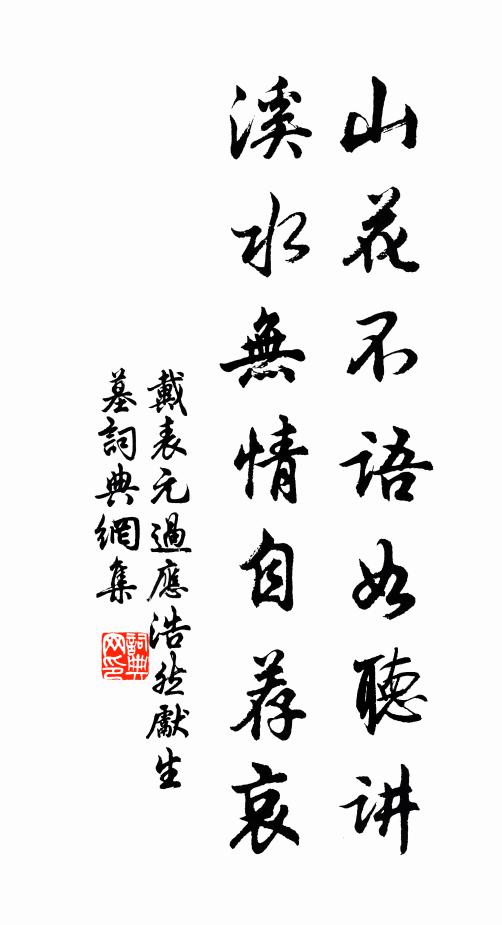 山花不语如聽讲
溪水無情自荐哀
戴表元過應浩然獻生
墓詞典網集
詞典网印